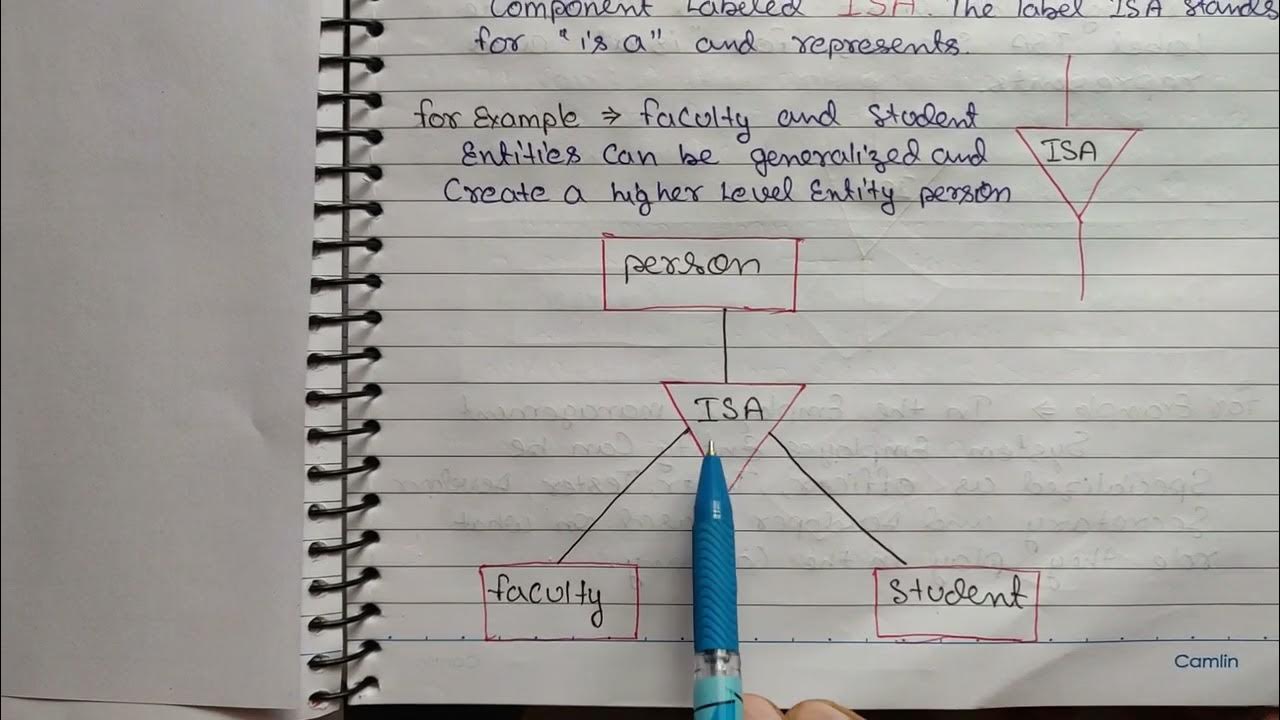 Component Labeled ISA. The label ISA stands
for "is a" and represents.
for Example ⇒ faculty and student
Entities can be generalized and
Create a higher Level Entity person
ISA
person
ISA
faculty
student
Camlin